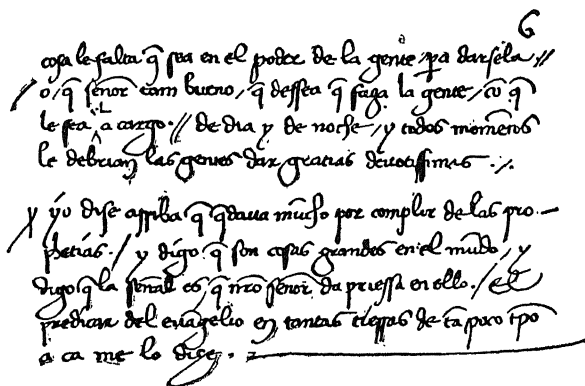 6
cosa le falta q̄ sea en el poder de la gente / pa darsela //
/ o, q̄ señor tam bueno, q̄ dessea q̄ faga la gente, cō q̄
le sea, a.L cargo. // de dia y de noche, y todos momētos
le debrian las gentes dar gracias devotissimas ./.
y yo dise arriba q̄ q̄dava mūcho por complir de las pro.—
/ phetias. / y digo q̄ son cosas grandes en el mūdo, y
digo q̄ la señal es, q̄ nro señor da priessa en ello. / el
predicar del evāgelio en tantas tierras de tā poco tp̄o
a ca me lo dize.